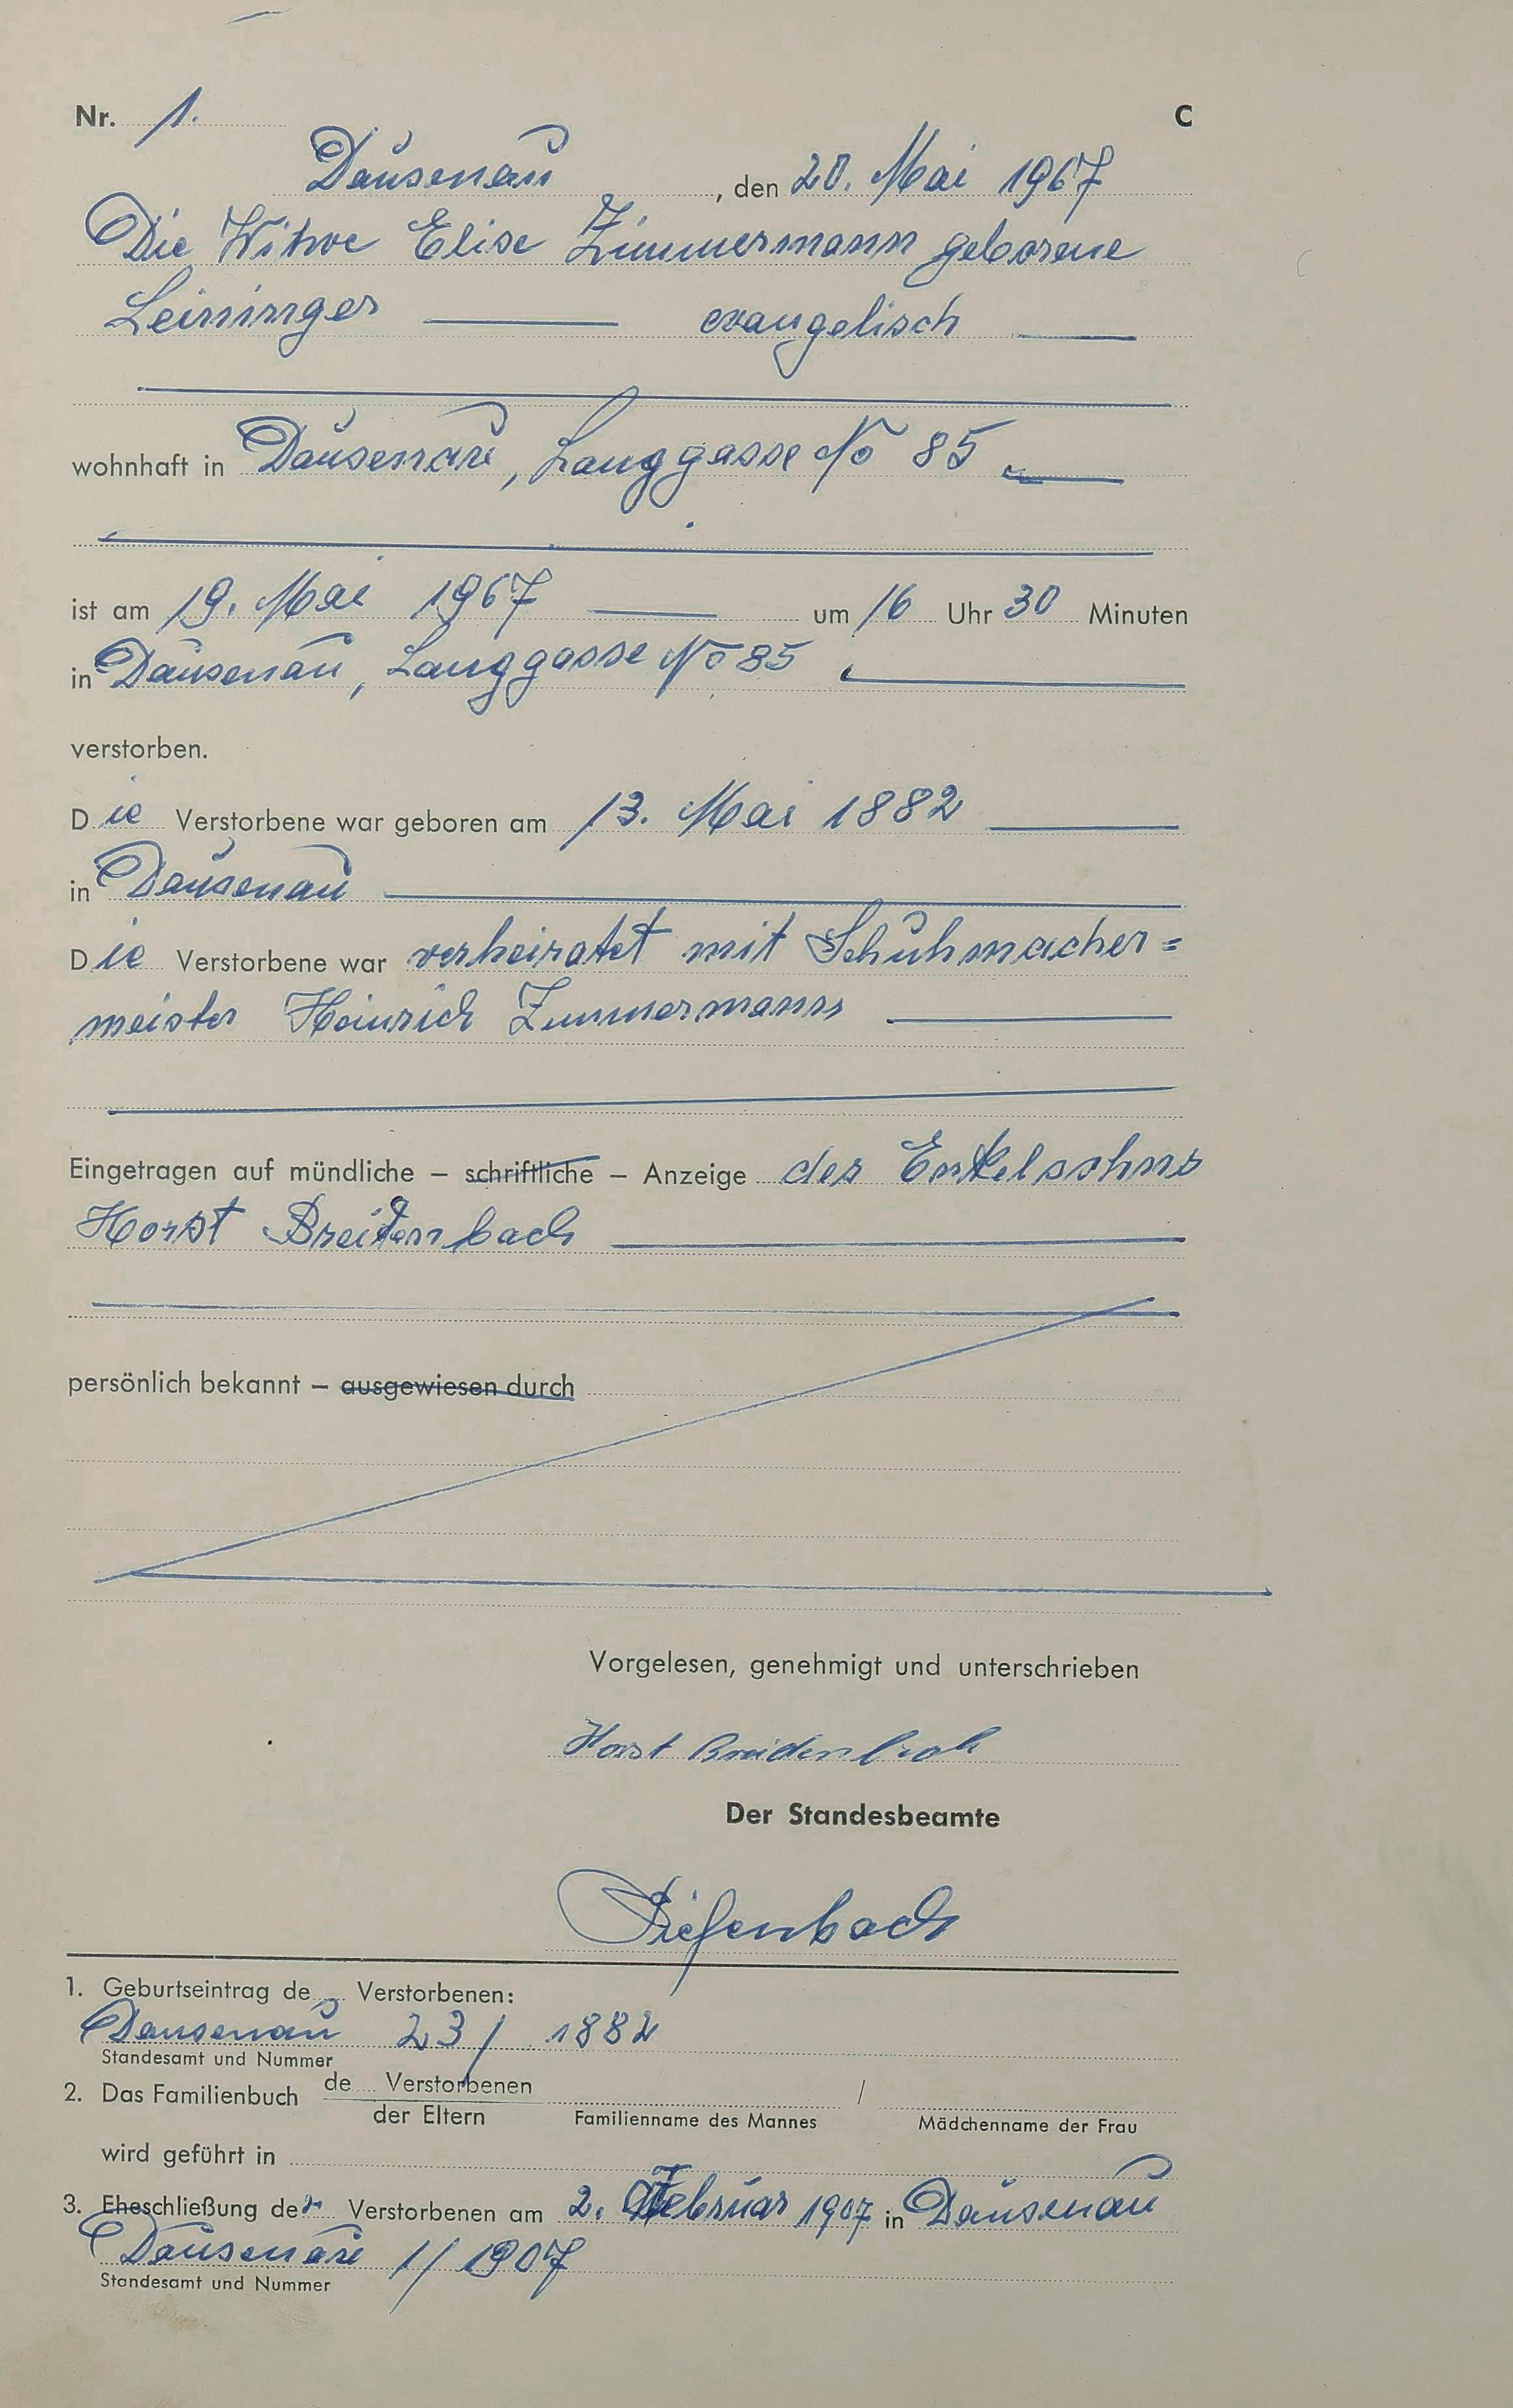 Nr. 1. C
Dausenau, den 20. Mai 1967
Die Witwe Elise Zimmermann geborene
Leininger evangelisch
wohnhaft in Dausenau, Langgasse No 85
ist am 19. Mai 1967 um 16 Uhr 30 Minuten
in Dausenau, Langgasse No 85
verstorben.
Die Verstorbene war geboren am 13. Mai 1882
in Dausenau
Die Verstorbene war verheiratet mit Schuhmacher=
meister Heinrich Zimmermann
Eingetragen auf mündliche – schriftliche – Anzeige des Enkelsohns
Horst Breidenbach
persönlich bekannt – ausgewiesen durch
Vorgelesen, genehmigt und unterschrieben
Horst Breidenbach
Der Standesbeamte
1. Geburtseintrag der Verstorbenen:
Dausenau 23/ 1882
Standesamt und Nummer
2. Das Familienbuch de Verstorbenen /
der Eltern Familienname des Mannes Mädchenname der Frau
wird geführt in
3. Eheschließung der Verstorbenen am 2. Februar 1907 in Dausenau
Dausenau 1/1907
Standesamt und Nummer